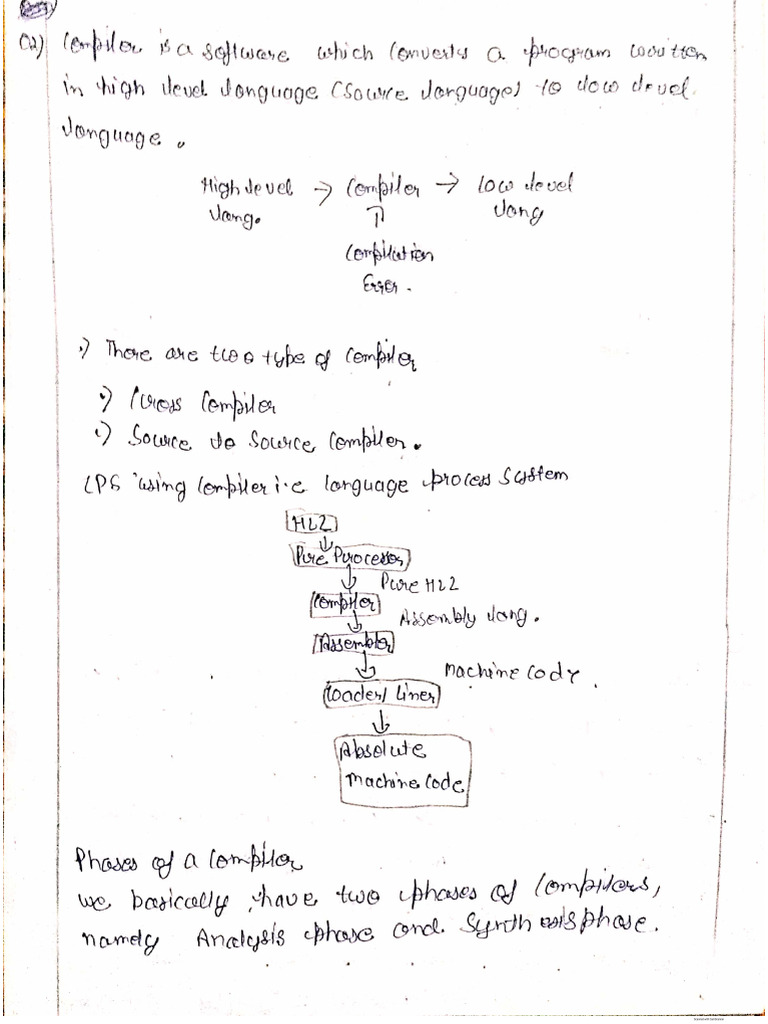 Q2) Compiler is a software which converts a program written
in high level language (Source language) to low level
language.
High level → Compiler → Low level
lang. ⇑ lang
Compilation
Error.
•) There are two type of Compiler
•) Cross Compiler
•) Source to Source Compiler.
LPS using Compiler i.e language process System
HLL
↓
Pre Processor
↓ Pure HLL
Compiler
↓ Assembly lang.
Assembler
↓ Machine Code
Loader/ Liner
↓
Absolute
Machine Code
Phases of a Compiler
we basically have two phases of Compilers,
namely Analysis phase and Synthesis phase.